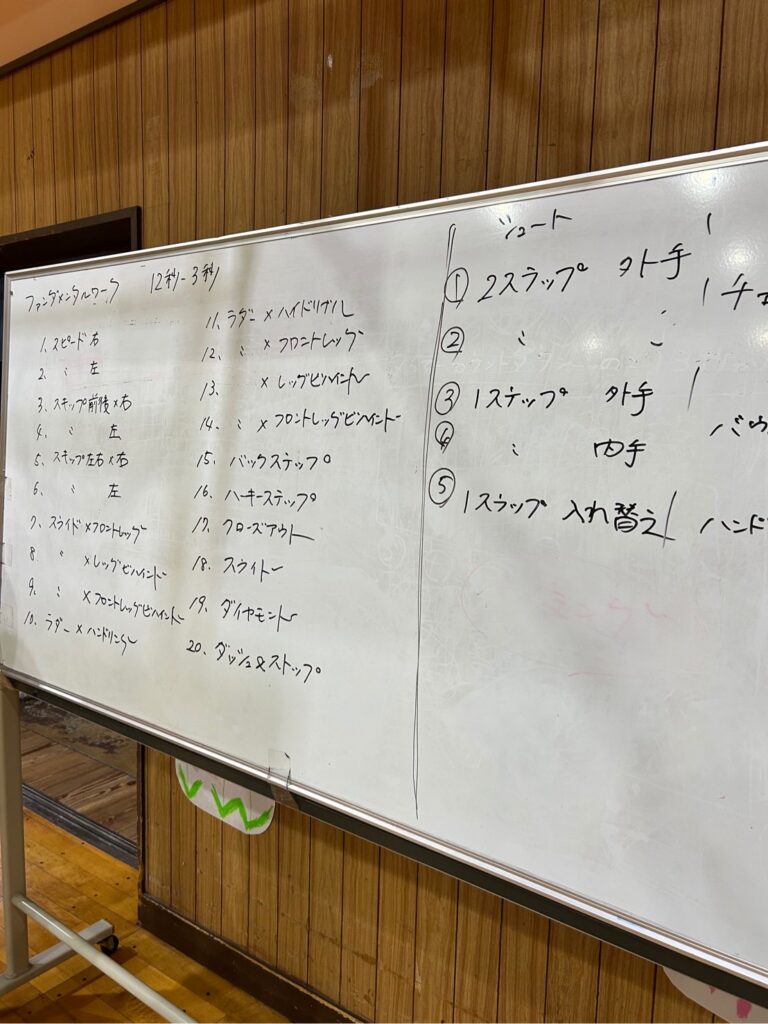 ファンダメンタルワーク 12秒-3秒
1. スピード右
2. 〃 左
3. スキップ前後×右
4. 〃 左
5. スキップ左右×右
6. 〃 左
7. スライド×フロントレッグ
8. 〃 ×レッグビハインド
9. 〃 ×フロントレッグビハインド
10. ラダー×ハンドリング
11. ラダー×ハイドリブル
12. 〃 ×フロントレッグ
13. ×レッグビハインド
14. 〃 ×フロントレッグビハインド
15. バックステップ
16. ハーキーステップ
17. クローズアウト
18. スライド
19. ダイヤモンド
20. ダッシュ&ストップ
シュート
① 2ステップ 外手 / チェ
② 〃 〃
③ 1ステップ 外手 /
④ 〃 内手 バウ
⑤ 1ステップ 入れ替え / ハンド